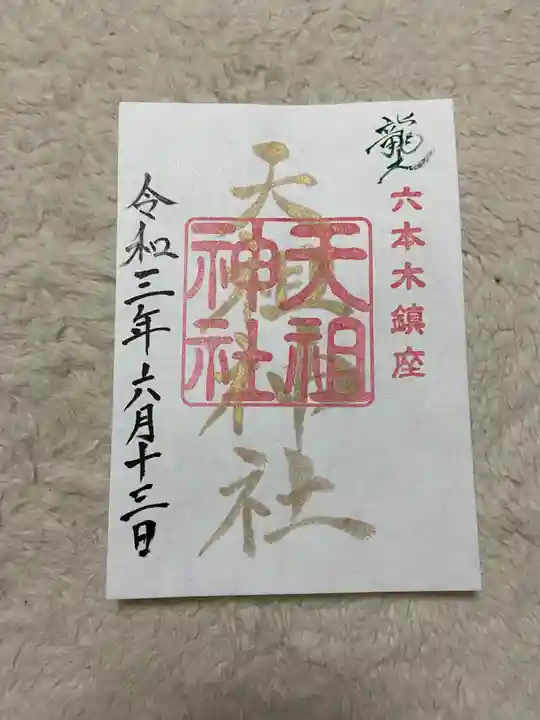 龍
六本木鎮座
天祖神社
天祖神社
令和三年六月十三日